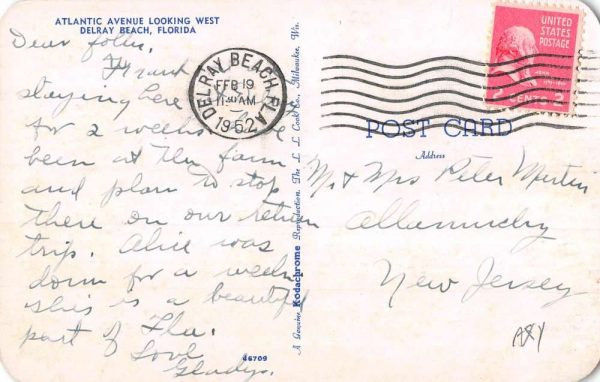 ATLANTIC AVENUE LOOKING WEST
DELRAY BEACH, FLORIDA
Dear folks,
staying here
for 2 weeks
been at the farm
and plan to stop
there on our return
trip. Alice was
down for a week
this is a beautiful
part of Fla.
Love
Gladys.
DELRAY BEACH, FLA.
FEB 19
11 30 AM
1952
UNITED
STATES
POSTAGE
2 CENTS 2
POST CARD
Address
Mr & Mrs Peter Martin
Allamuchy
New Jersey
A Genuine Kodachrome Reproduction. The L. L. Cook Co., Milwaukee, Wis.
46709